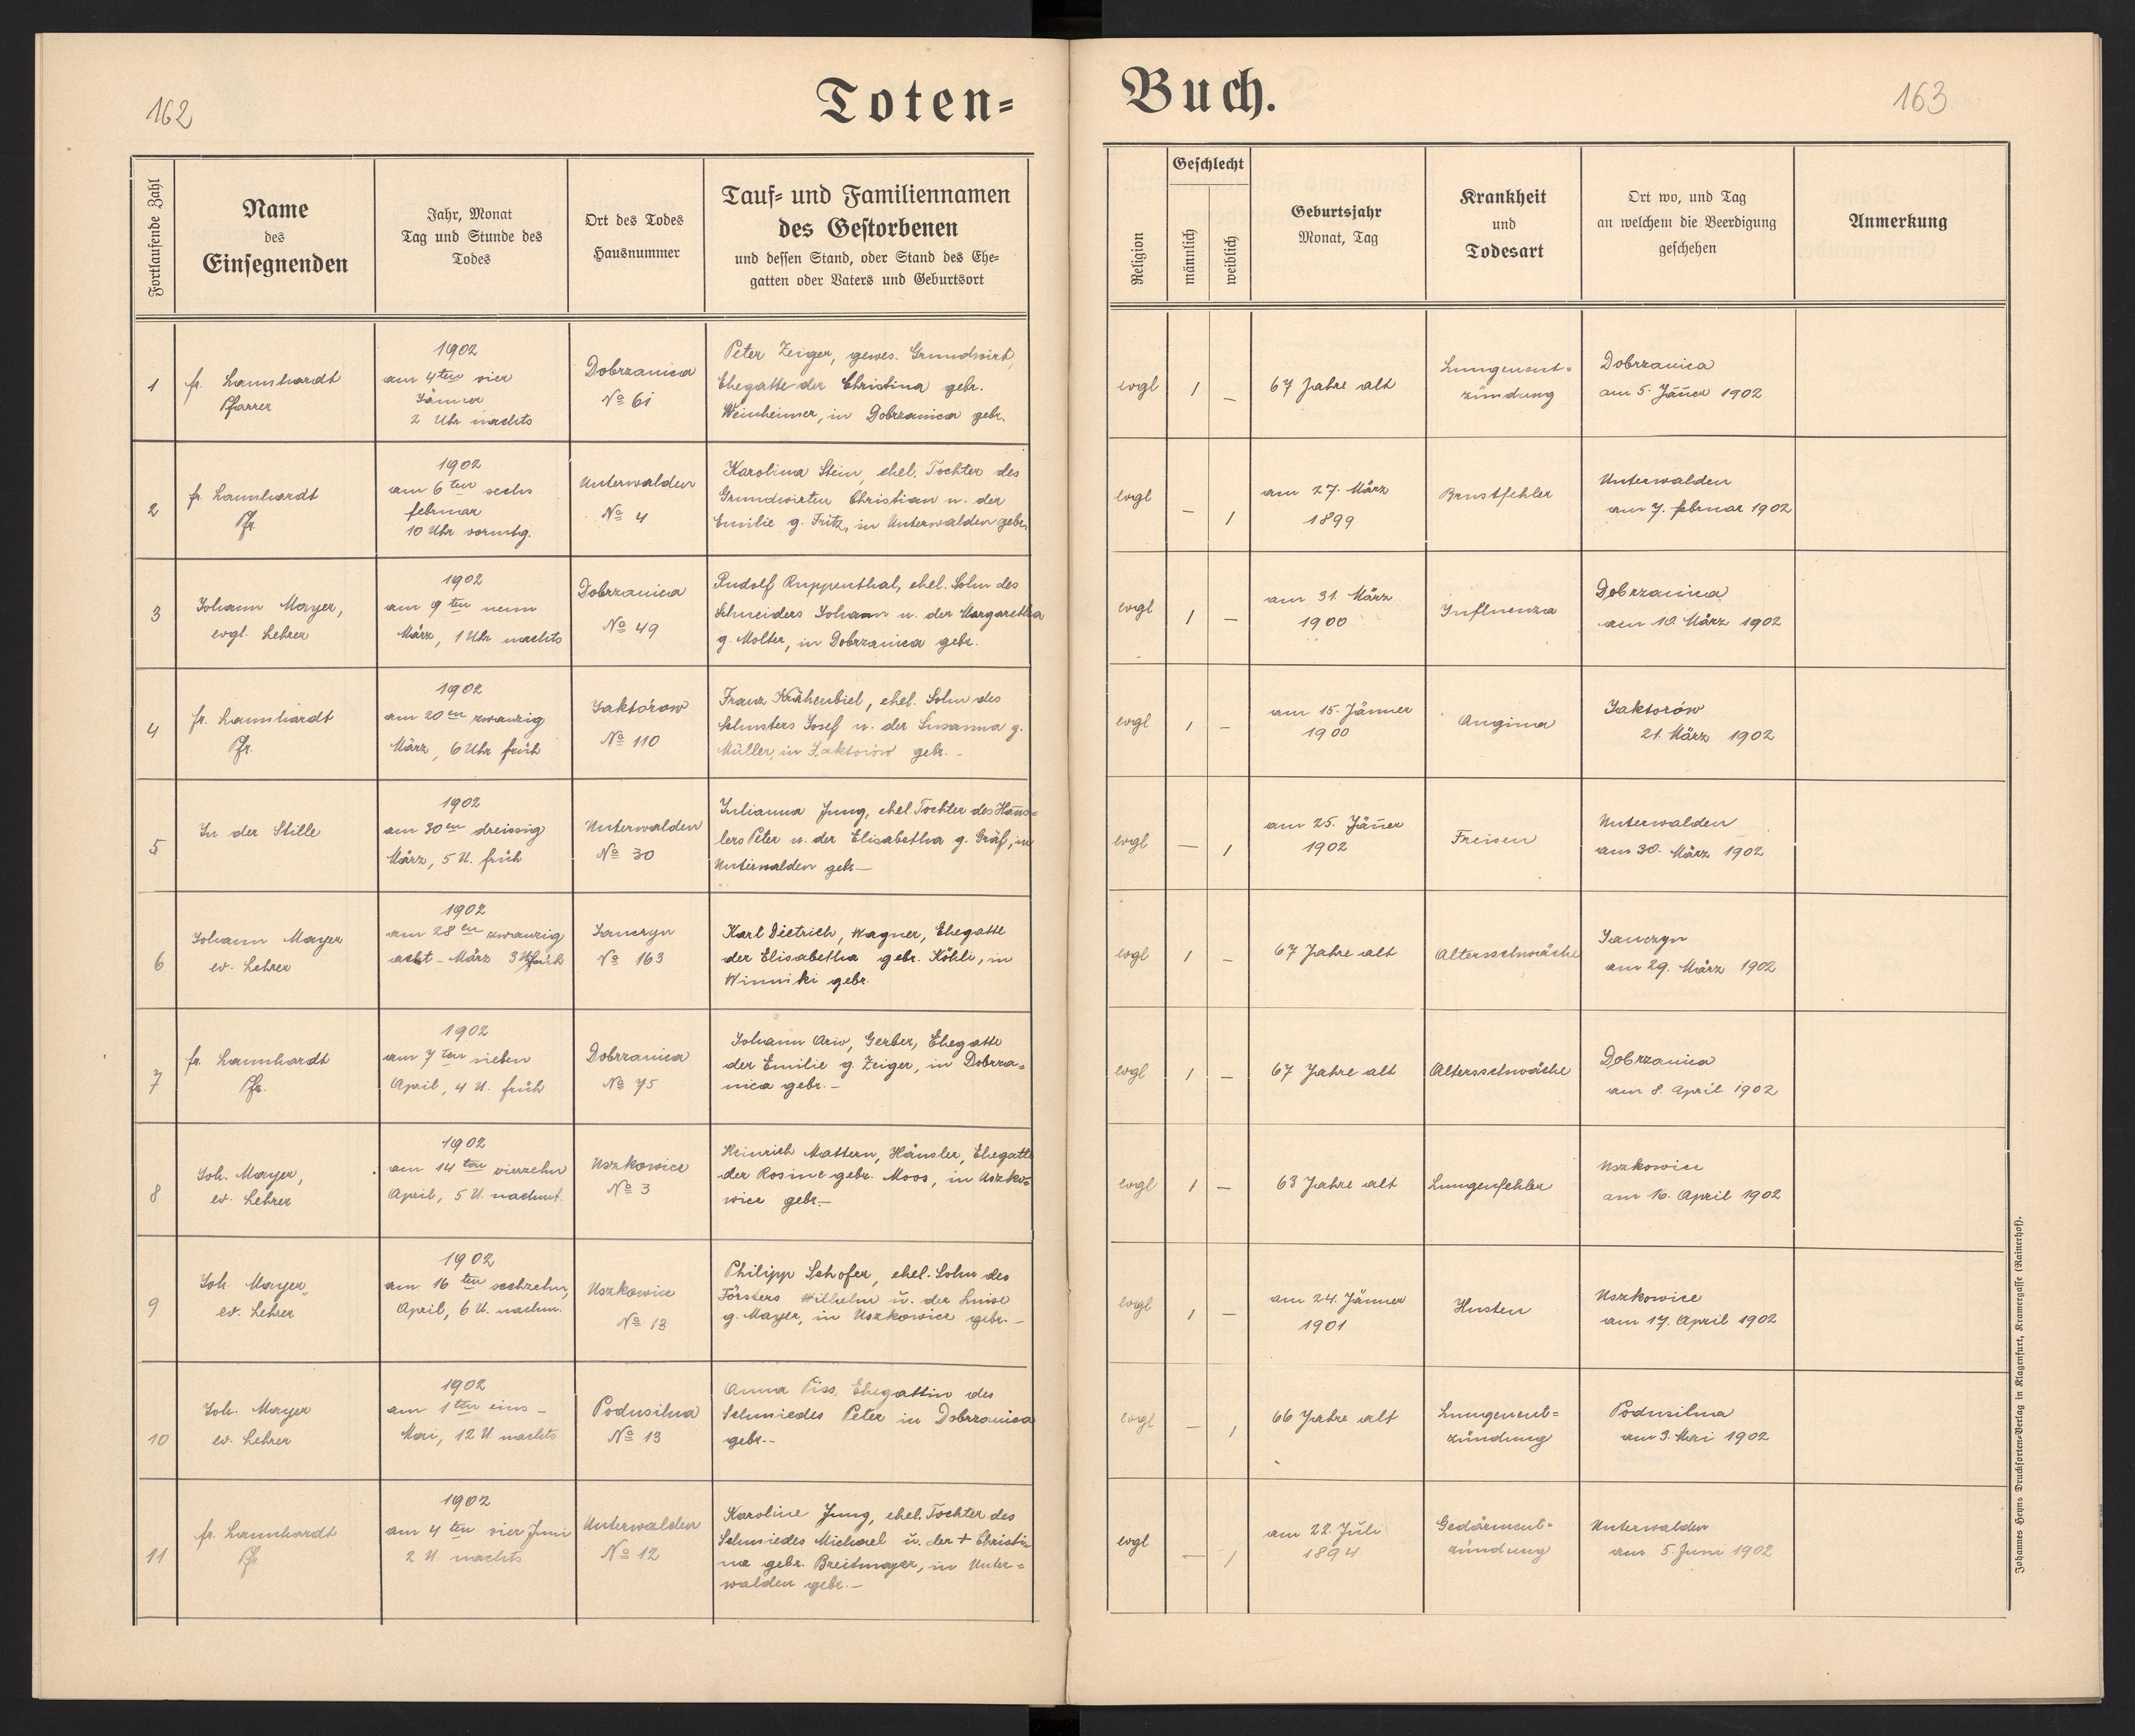 162
Toten=
Fortlaufende Zahl
Name
des
Einsegnenden
Jahr, Monat
Tag und Stunde des
Todes
Ort des Todes
Hausnummer
Tauf= und Familiennamen
des Gestorbenen
und dessen Stand, oder Stand des Ehe=
gatten oder Vaters und Geburtsort
1
fr. Lannhardt
Pfarrer
1902
am 4ten vier
Jänner
2 Uhr nachts
Dobrzanica
No 61
Peter Zeiger, gewes. Grundwirt,
Ehegatte der Christina gebr.
Weinheimer, in Dobrzanica gebr.
2
fr. Lannhardt
Pfr.
1902
am 6ten sechs
februar
10 Uhr vormtg.
Unterwalden
No 4
Karolina Stein, ehel. Tochter des
Grundwirten Christian u. der
Emilie g. Fritz, in Unterwalden gebr.
3
Johann Mayer,
evgl. Lehrer
1902
am 9ten neun
März, 1 Uhr nachts
Dobrzanica
No 49
Rudolf Ruppenthal, ehel. Sohn des
Schneiders Johann u. der Margaretha
g. Molter, in Dobrzanica gebr.
4
fr. Lannhardt
Pfr.
1902
am 20en zwanzig
März, 6 Uhr früh
Jaktorow
No 110
Franz Krähenbiel, ehel. Sohn des
Schusters Josef u. der Susanna g.
Müller, in Jaktorow gebr. –
5
In der Stille
1902
am 30en dreissig
März, 5 U. früh
Unterwalden
No 30
Julianna Jung, ehel. Tochter des Häus=
lers Peter u. der Elisabetha g. Gräf, in
Unterwalden gebr –
6
Johann Mayer
ev. Lehrer
1902
am 28en zwanzig
acht – März 3 U früh
Janczyn
No 163
Karl Dietrich, Wagner, Ehegatte
der Elisabetha gebr. Köhle, in
Winniki gebr.
7
fr. Lannhardt
Pfr.
1902
am 7ten sieben
April, 4 U. früh
Dobrzanica
No 75
Johann Ariv, Gerber, Ehegatte
der Emilie g. Zeiger, in Dobrza=
nica gebr. –
8
Joh. Mayer,
ev. Lehrer
1902
am 14ten vierzehn
April, 5 U. nachmt.
Uszkowice
No 3
Heinrich Mattern, Häusler, Ehegatte
der Rosine gebr. Moos, in Uszko=
wice gebr. –
9
Joh. Mayer,
ev. Lehrer
1902
am 16ten sechzehn,
April, 6 U. nachm.
Uszkowice
No 13
Philipp Schofer, ehel. Sohn des
Försters Wilhelm ü. der Luise
g. Mayer, in Uszkowice gebr. –
10
Joh. Mayer
ev. Lehrer
1902
am 1ten eins –
Mai, 12 U nachts
Podusilna
No 13
Anna Piss, Ehegattin des
Schmiedes Peter in Dobrzanica
gebr. –
11
fr. Lannhardt
Pfr.
1902
am 4ten vier Juni
2 U. nachts
Unterwalden
No 12
Karoline Jung, ehel. Tochter des
Schmiedes Michael ü. der + Christi=
na gebr. Breitmayer, in Unter=
walden gebr. –
Buch.
163
Religion
Geschlecht
männlich
weiblich
Geburtsjahr
Monat, Tag
Krankheit
und
Todesart
Ort wo, und Tag
an welchem die Beerdigung
geschehen
Anmerkung
evgl
1
–
67 Jahre alt
Lungenent=
zündung
Dobrzanica
am 5. Jäner 1902
evgl
–
1
am 27. März
1899
Brustfehler
Unterwalden
am 7. februar 1902
evgl
1
–
am 31. März
1900
Influenza
Dobrzanica
am 10. März 1902
evgl
1
–
am 15. Jänner
1900
Angina
Jaktorów
21. März 1902
evgl
–
1
am 25. Jäner
1902
Freisen
Unterwalden
am 30. März 1902
evgl
1
–
67 Jahre alt
Altersschwäche
Janczyn
am 29. März 1902
evgl
1
–
67 Jahre alt
Altersschwäche
Dobrzanica
am 8. April 1902
evgl
1
–
63 Jahre alt
Lungenfehler
Uszkowice
am 16. April 1902
evgl
1
–
am 24. Jänner
1901
Husten
Uszkowice
am 17. April 1902
evgl
–
1
66 Jahre alt
Lungenent=
zündung
Podusilna
am 3. Mai 1902
evgl
–
1
am 22. Juli
1894
Gedärment=
zündung
Unterwalden
am 5. Juni 1902
Johannes Heyns Drucksorten=Verlag in Klagenfurt, Kramergasse (Rainerhof).